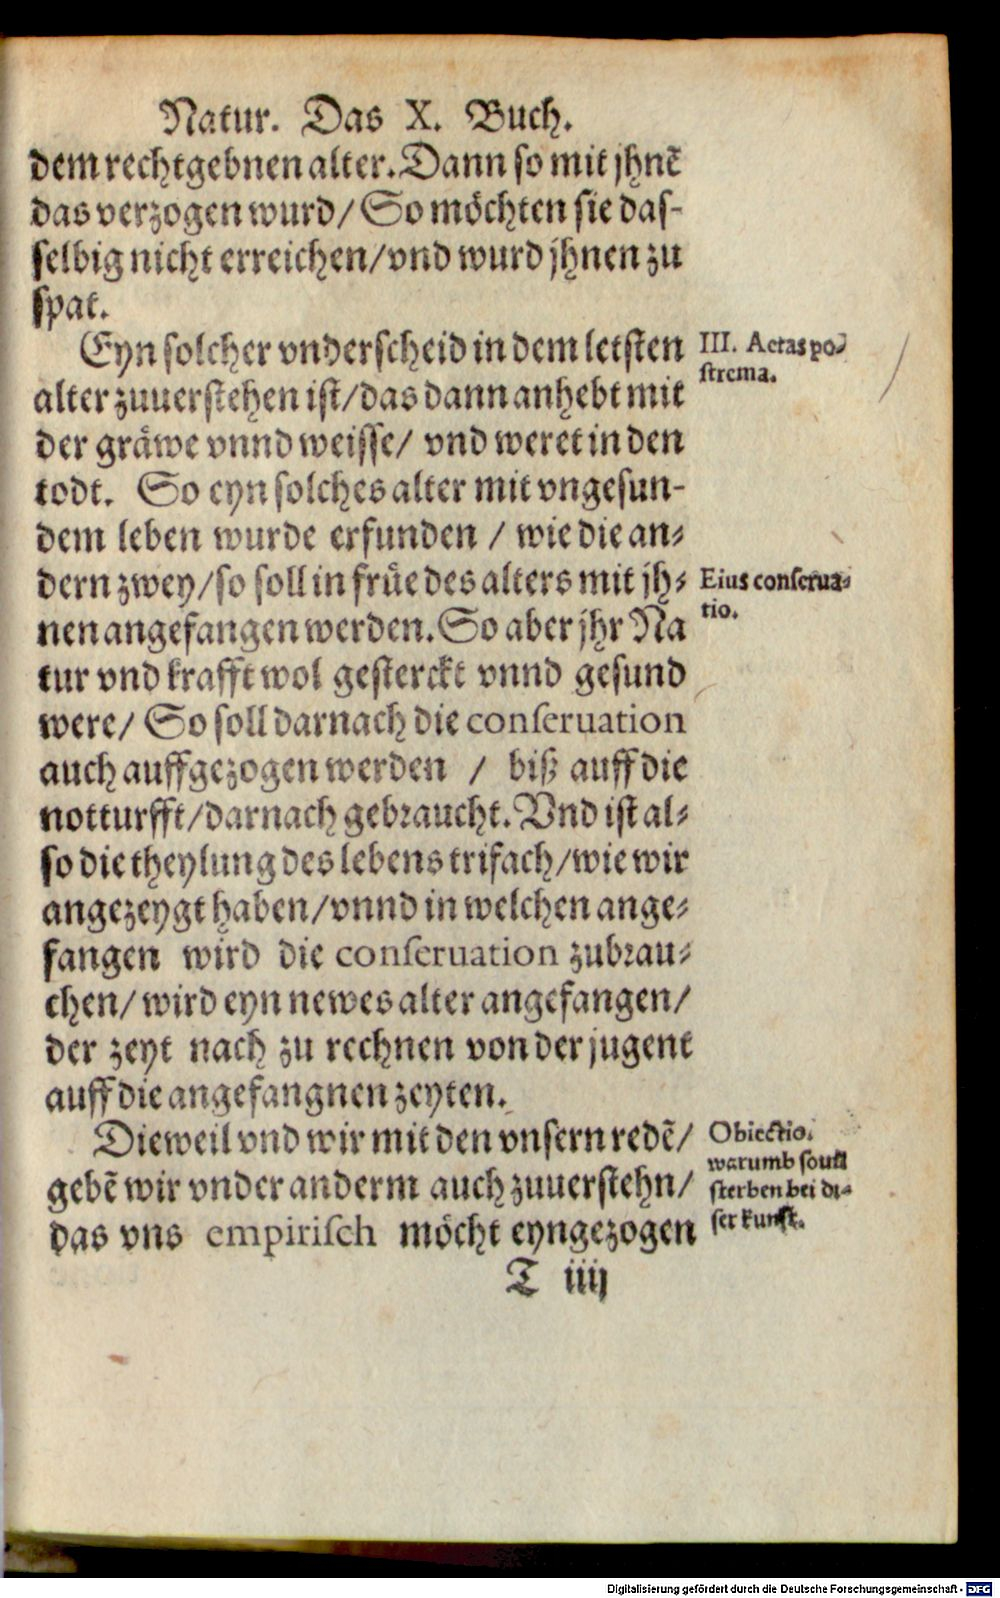 Natur. Das X. Buch.
dem rechtgebnen alter. Dann so mit jhnē
das verzogen wurd/ So möchten sie das-
selbig nicht erreichen/ vnd wurd jhnen zu
spat.
Eyn solcher vnderscheid in dem letsten
III. Aetas po-
strema.
alter zuuerstehen ist/ das dann anhebt mit
der gräwe vnnd weisse/ vnd weret in den
todt. So eyn solches alter mit vngesun-
dem leben wurde erfunden / wie die an-
dern zwey/ so soll in früe des alters mit jh-
Eius conserua-
tio.
nen angefangen werden. So aber jhr Na
tur vnd krafft wol gesterckt vnnd gesund
were/ So soll darnach die conseruation
auch auffgezogen werden / biß auff die
notturfft/ darnach gebraucht. Vnd ist al-
so die theylung des lebens trifach/ wie wir
angezeygt haben/ vnnd in welchen ange-
fangen wird die conseruation zubrau-
chen/ wird eyn newes alter angefangen/
der zeyt nach zu rechnen von der jugent
auff die angefangnen zeyten.
Dieweil vnd wir mit den vnsern redē/
Obiectio.
warumb souil
sterben bei di-
ser kunst.
gebē wir vnder anderm auch zuuerstehn/
das vns empirisch möcht eyngezogen
T iiij
Digitalisierung gefördert durch die Deutsche Forschungsgemeinschaft - DFG